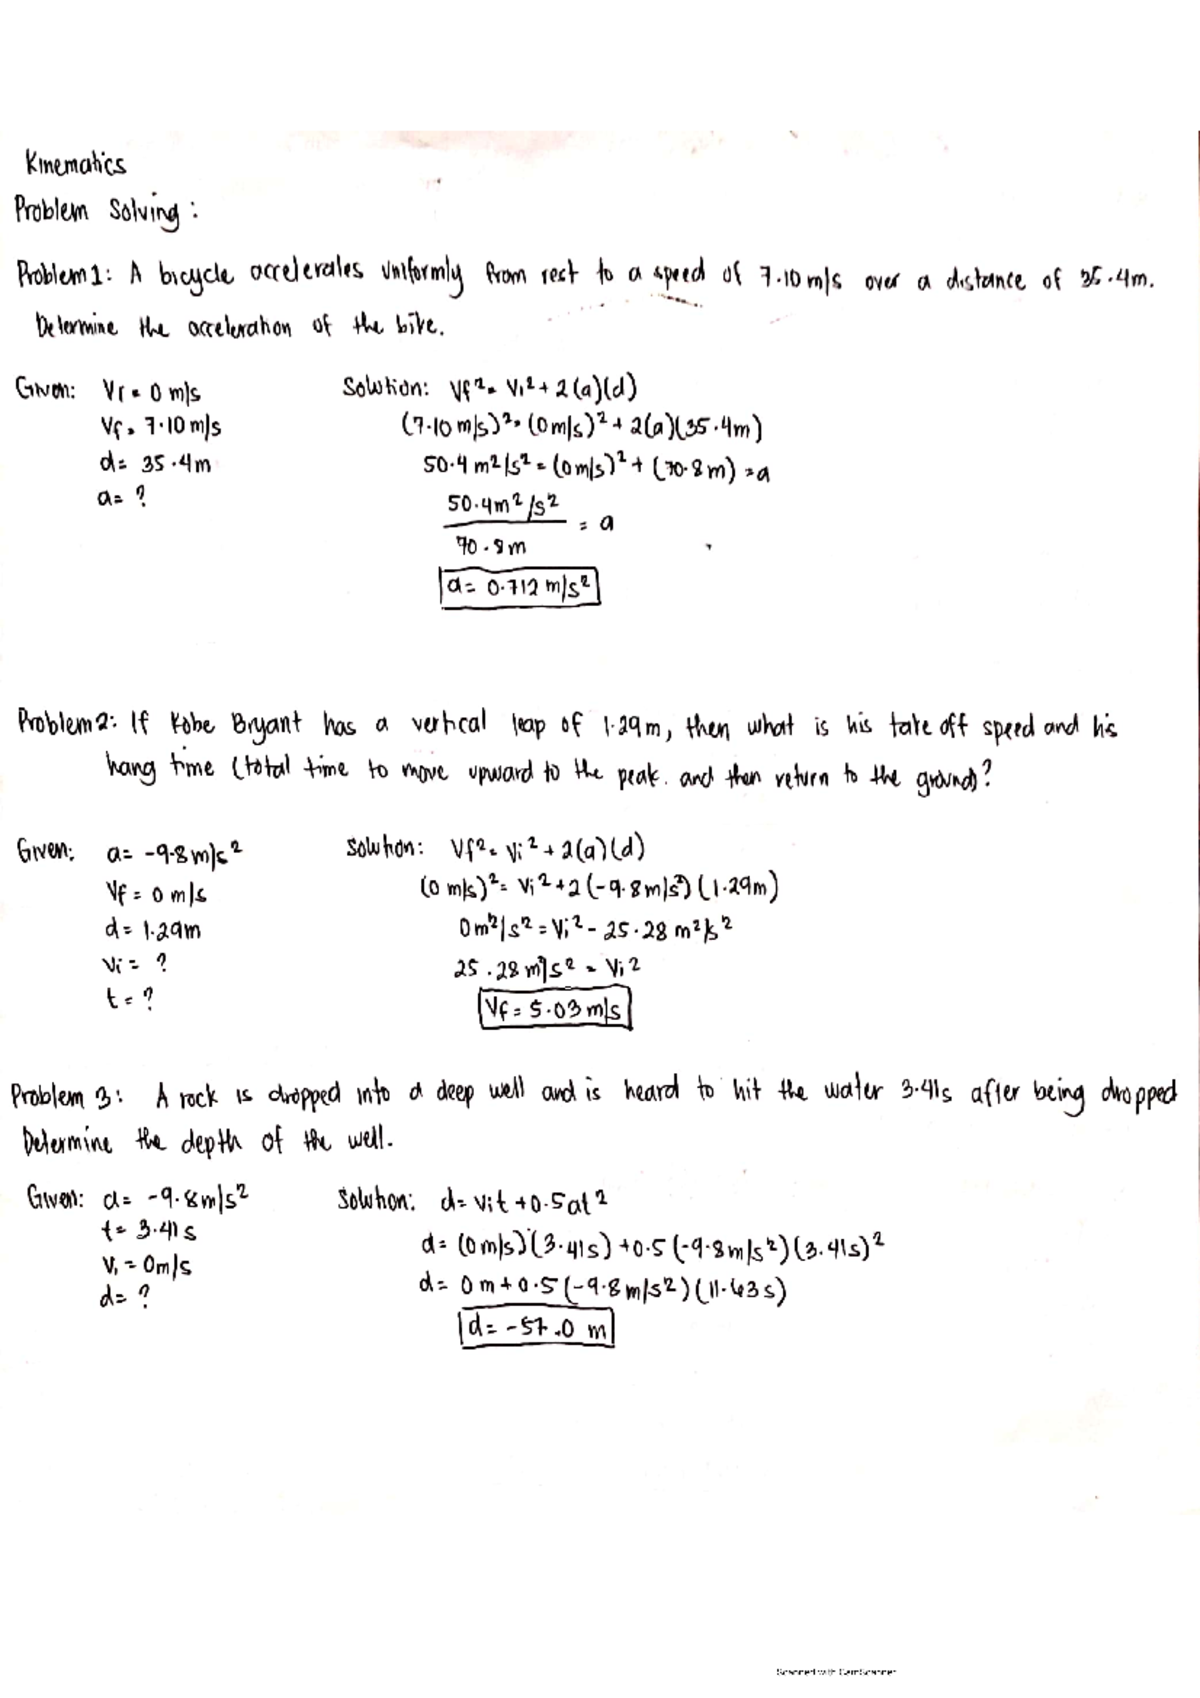 Kinematics
Problem Solving:
Problem 1: A bicycle accelerates uniformly from rest to a speed of 7.10 m/s over a distance of 35.4m.
Determine the acceleration of the bike.
Given: Vi = 0 m/s
Vf = 7.10 m/s
d = 35.4m
a = ?
Solution: Vf² = Vi² + 2(a)(d)
(7.10 m/s)² = (0 m/s)² + 2(a)(35.4m)
50.4 m²/s² = (0 m/s)² + (70.8 m) = a
50.4 m²/s²
= a
70.8 m
a = 0.712 m/s²
Problem 2: If Kobe Bryant has a vertical leap of 1.29m, then what is his take off speed and his
hang time (total time to move upward to the peak. and then return to the ground)?
Given: a = -9.8 m/s²
Vf = 0 m/s
d = 1.29m
Vi = ?
t = ?
Solution: Vf² = Vi² + 2(a)(d)
(0 m/s)² = Vi² + 2(-9.8 m/s²)(1.29m)
0 m²/s² = Vi² - 25.28 m²/s²
25.28 m²/s² = Vi²
Vf = 5.03 m/s
Problem 3: A rock is dropped into a deep well and is heard to hit the water 3.41s after being dropped
Determine the depth of the well.
Given: a = -9.8 m/s²
t = 3.41 s
Vi = 0 m/s
d = ?
Solution: d = vit + 0.5at²
d = (0 m/s)(3.41s) + 0.5(-9.8 m/s²)(3.41s)²
d = 0 m + 0.5(-9.8 m/s²)(11.63 s)
d = -57.0 m
Scanned with CamScanner